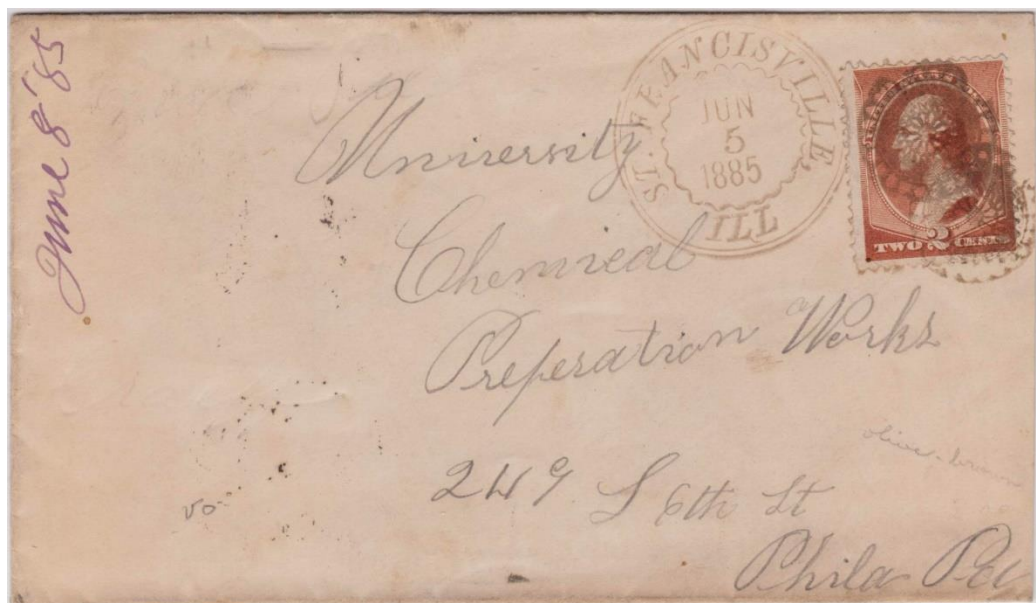 June 8 '85
ST. FRANCISVILLE
JUN
5
1885
ILL
TWO 2 CENTS
University
Chemical
Preperation Works
olive-brown
249 S 6th St
Phila Pa
50